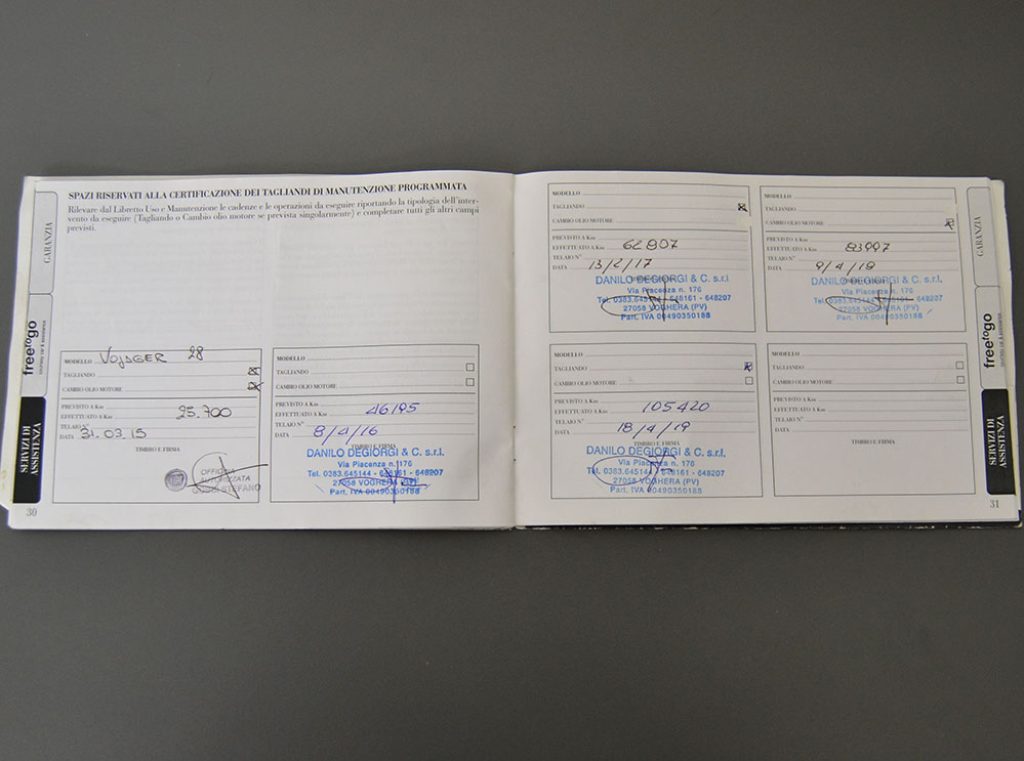 SPAZI RISERVATI ALLA CERTIFICAZIONE DEI TAGLIANDI DI MANUTENZIONE PROGRAMMATA
Rilevare dal Libretto Uso e Manutenzione le cadenze e le operazioni da eseguire riportando la tipologia dell'inter-
vento da eseguire (Tagliando o Cambio olio motore se prevista singolarmente) e completare tutti gli altri campi
previsti.
GARANZIA
freetogo
SERVIZI DI
ASSISTENZA
MODELLO VOJAGER 28
TAGLIANDO
CAMBIO OLIO MOTORE
PREVISTO A Km
EFFETTUATO A Km 25.700
TELAIO N°
DATA 31.03.15
TIMBRO E FIRMA
OFFICINA
AUTORIZZATA
STEFANO
MODELLO
TAGLIANDO
CAMBIO OLIO MOTORE
PREVISTO A Km
EFFETTUATO A Km 46195
TELAIO N°
DATA 8/4/16
DANILO DEGIORGI & C. s.r.l.
Via Piacenza n. 176
Tel. 0383.645144 - 648161 - 648207
27058 VOGHERA (PV)
Part. IVA 00490350188
30
MODELLO
TAGLIANDO
CAMBIO OLIO MOTORE
PREVISTO A Km
EFFETTUATO A Km 62807
TELAIO N°
DATA 13/2/17
DANILO DEGIORGI & C. s.r.l.
Via Piacenza n. 176
Tel. 0383.645144 - 648161 - 648207
27058 VOGHERA (PV)
Part. IVA 00490350188
MODELLO
TAGLIANDO
CAMBIO OLIO MOTORE
PREVISTO A Km
EFFETTUATO A Km 83997
TELAIO N°
DATA 9/4/18
DANILO DEGIORGI & C. s.r.l.
Via Piacenza n. 176
Tel. 0383.645144 - 648161 - 648207
27058 VOGHERA (PV)
Part. IVA 00490350188
MODELLO
TAGLIANDO
CAMBIO OLIO MOTORE
PREVISTO A Km
EFFETTUATO A Km 105420
TELAIO N°
DATA 18/4/19
TIMBRO E FIRMA
DANILO DEGIORGI & C. s.r.l.
Via Piacenza n. 176
Tel. 0383.645144 - 648161 - 648207
27058 VOGHERA (PV)
Part. IVA 00490350188
MODELLO
TAGLIANDO
CAMBIO OLIO MOTORE
PREVISTO A Km
EFFETTUATO A Km
TELAIO N°
DATA
TIMBRO E FIRMA
GARANZIA
freetogo
SERVIZI DI
ASSISTENZA
31